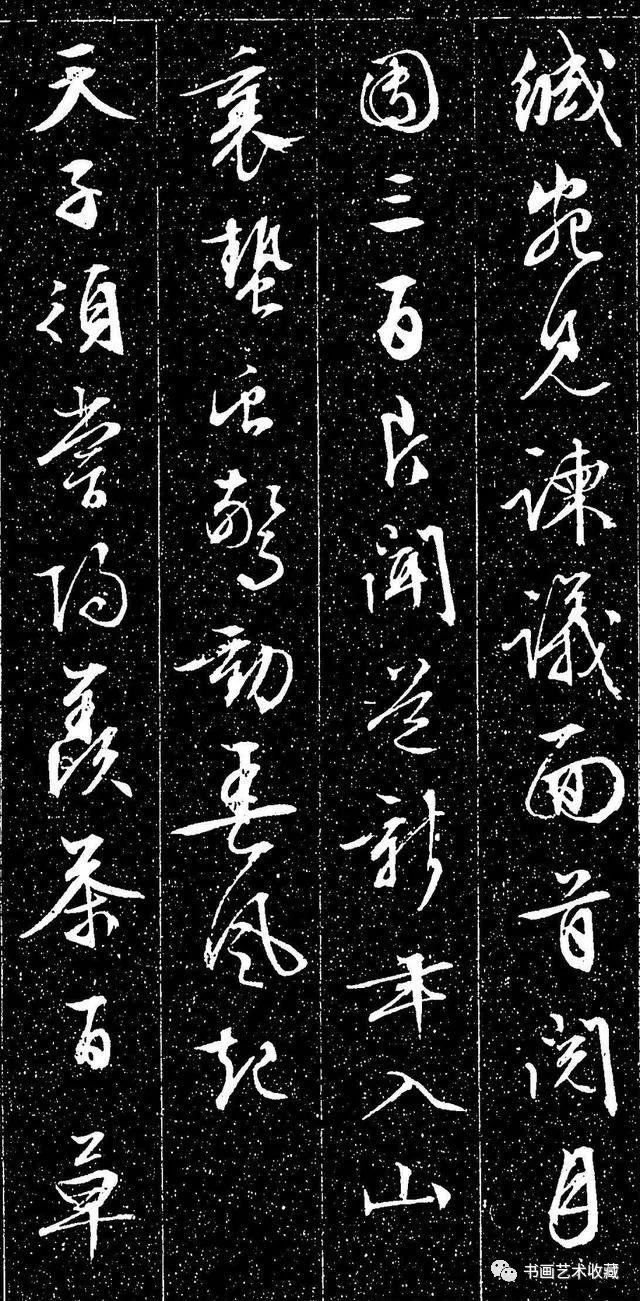 緘宛見諫議面首閱月
團三百片聞道新年入山
裏蟄虫驚動春風起
天子須嘗陽羨茶百草
书画艺术收藏